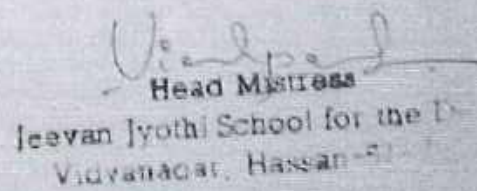 Head Mistress
Jeevan Jyothi School for the
Vidyanagar, Hassan